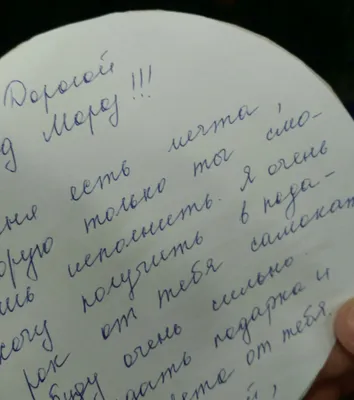 Дорогой
д Мороз!!!
ня есть мечта,
орую только ты смо-
шь исполнить. Я очень
хочу получить в пода-
рок от тебя самокат
буду очень сильно
дать подарка и
ета от тебя.